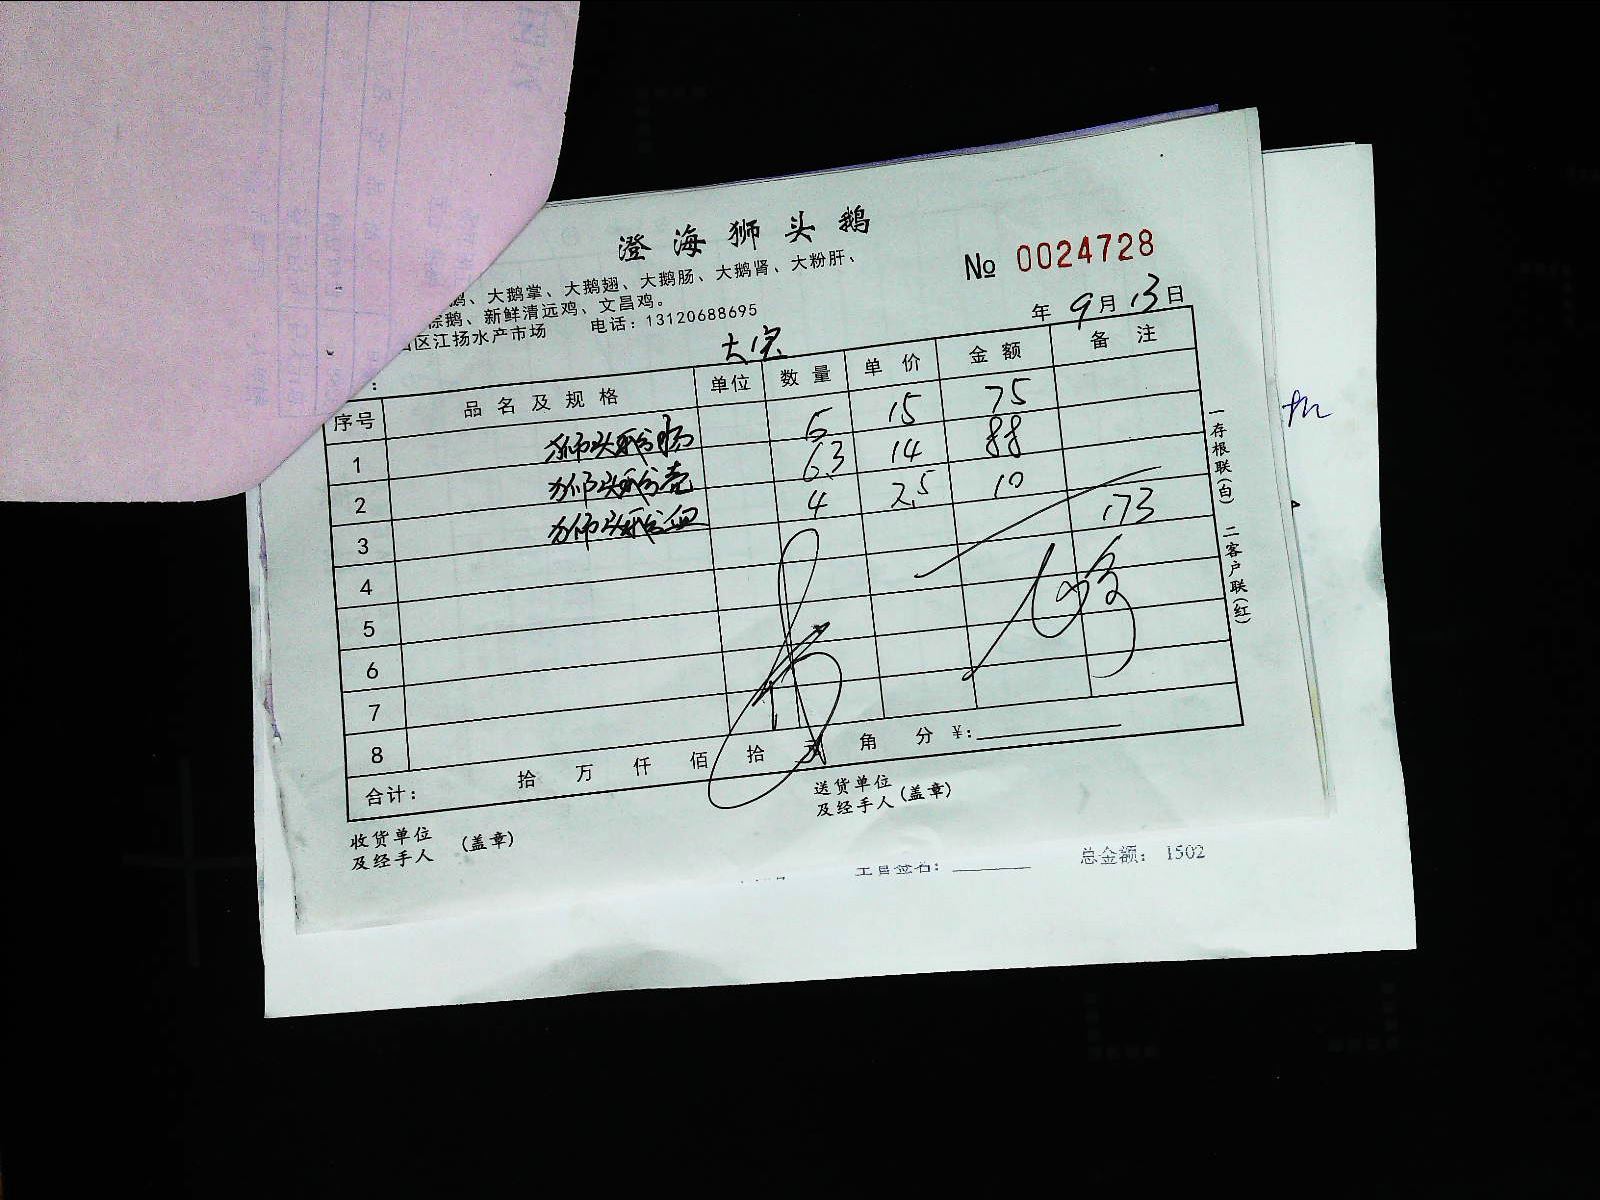 澄海狮头鹅
№ 0024728
鹅、大鹅掌、大鹅翅、大鹅肠、大鹅肾、大粉肝、
鹅、新鲜清远鸡、文昌鸡。
区江扬水产市场 电话：13120688695
年 9月13日
大宝
序号 品名及规格 单位 数量 单价 金额 备注
1 狮头鹅肠 5 15 75
2 狮头鹅壳 6.3 14 88
3 狮头鹅血 4 2.5 10
173
4
5
6
7
8
合计： 拾 万 仟 佰 拾 元 角 分 ¥：
收货单位
及经手人 (盖章)
送货单位
及经手人 (盖章)
一存根联(白) 二客户联(红)
签名：
总金额： 1502